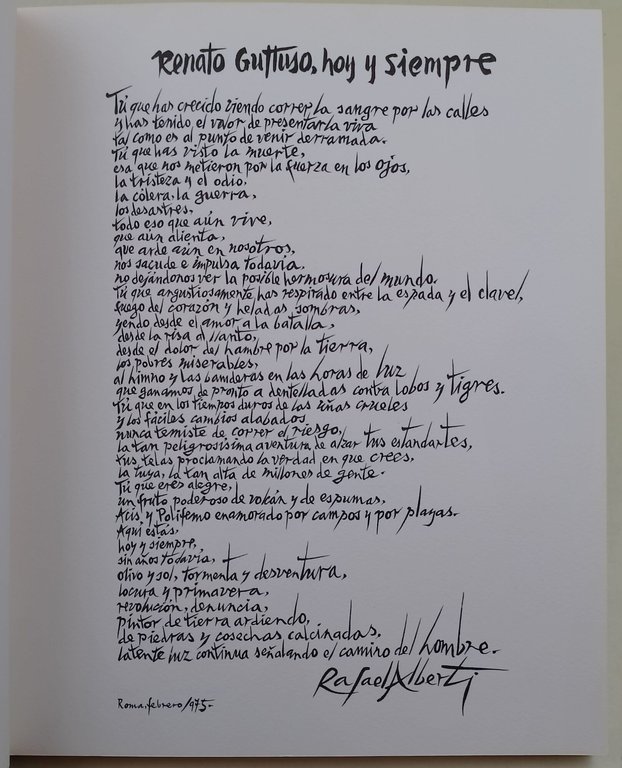 Renato Guttuso, hoy y siempre
Tú que has crecido viendo correr la sangre por las calles
y has tenido el valor de presentarla viva
tal como es al punto de venir derramada.
Tú que has visto la muerte,
esa que nos metieron por la fuerza en los ojos,
la tristeza y el odio,
la cólera, la guerra,
los desastres,
todo eso que aún vive,
que aún alienta,
que arde aún en nosotros,
nos sacude e impulsa todavía,
no dejándonos ver la posible hermosura del mundo.
Tú que angustiosamente has respirado entre la espada y el clavel,
fuego del corazón y heladas sombras,
yendo desde el amor a la batalla,
desde la risa al llanto,
desde el dolor del hambre por la tierra,
los pobres miserables,
al himno y las banderas en las horas de luz
que ganamos de pronto a dentelladas contra lobos y tigres.
Tú que en los tiempos duros de las uñas crueles
y los fáciles cambios alabados
nunca temiste de correr el riesgo,
la tan peligrosísima aventura de alzar tus estandartes,
tus telas proclamando la verdad en que crees,
la tuya, la tan alta de millones de gente.
Tú que eres alegre,
un fruto poderoso de volcán y de espumas,
Acis y Polifemo enamorado por campos y por playas.
Aquí estás,
hoy y siempre,
sin años todavía,
olivo y sol, tormenta y desventura,
locura y primavera,
revolución, denuncia,
pintor de tierra ardiendo,
de piedras y cosechas calcinadas,
latente luz continua señalando el camino del hombre.
Rafael Alberti
Roma, febrero/1975-